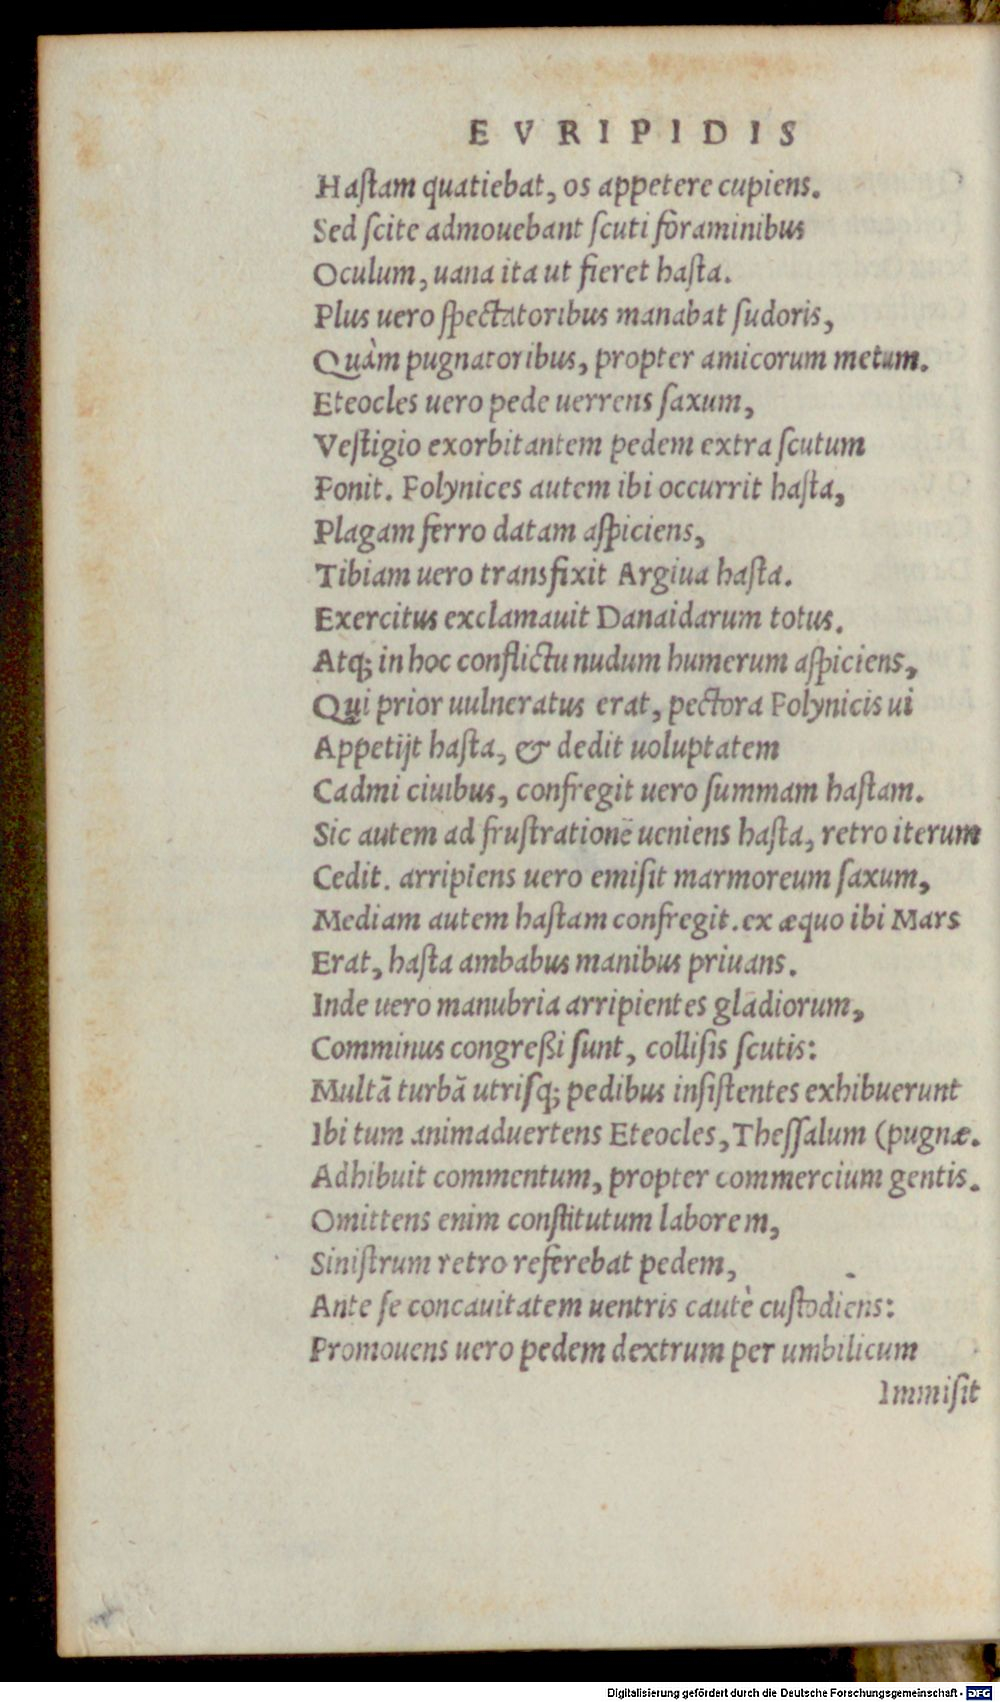 EVRIPIDIS
Hastam quatiebat, os appetere cupiens.
Sed scite admouebant scuti foraminibus
Oculum, uana ita ut fieret hasta.
Plus uero spectatoribus manabat sudoris,
Quàm pugnatoribus, propter amicorum metum.
Eteocles uero pede uerrens saxum,
Vestigio exorbitantem pedem extra scutum
Ponit. Polynices autem ibi occurrit hasta,
Plagam ferro datam aspiciens,
Tibiam uero transfixit Argiua hasta.
Exercitus exclamauit Danaidarum totus.
Atq; in hoc conflictu nudum humerum aspiciens,
Qui prior uulneratus erat, pectora Polynicis ui
Appetijt hasta, & dedit uoluptatem
Cadmi ciuibus, confregit uero summam hastam.
Sic autem ad frustrationē ueniens hasta, retro iterum
Cedit. arripiens uero emisit marmoreum saxum,
Mediam autem hastam confregit. ex æquo ibi Mars
Erat, hasta ambabus manibus priuans.
Inde uero manubria arripientes gladiorum,
Comminus congreßi sunt, collisis scutis:
Multā turbā utrisq; pedibus insistentes exhibuerunt
Ibi tum animaduertens Eteocles, Thessalum (pugnæ.
Adhibuit commentum, propter commercium gentis.
Omittens enim constitutum laborem,
Sinistrum retro referebat pedem,
Ante se concauitatem uentris cautè custodiens:
Promouens uero pedem dextrum per umbilicum
Immisit
Digitalisierung gefördert durch die Deutsche Forschungsgemeinschaft - DFG